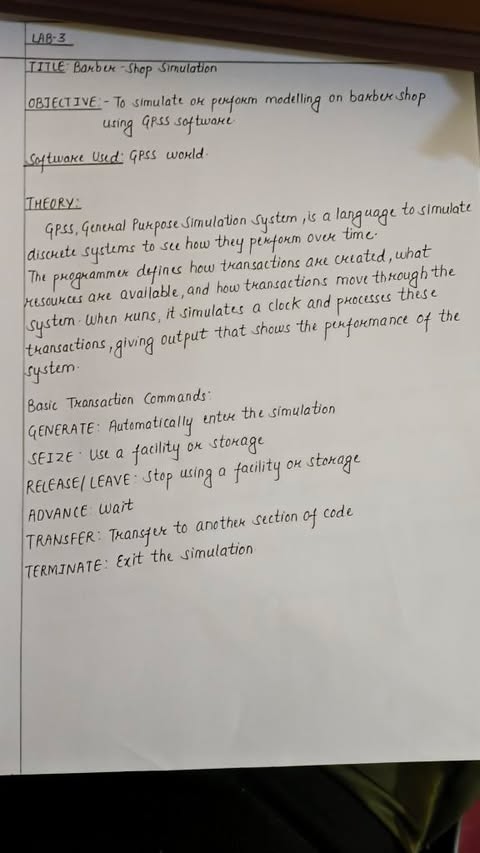 LAB-3
TITLE: Barber-Shop Simulation
OBJECTIVE:- To simulate or perform modelling on barber shop
using GPSS software.
Software Used: GPSS world.
THEORY:
GPSS, General Purpose Simulation System, is a language to simulate
discrete systems to see how they perform over time.
The programmer defines how transactions are created, what
resources are available, and how transactions move through the
system. When runs, it simulates a clock and processes these
transactions, giving output that shows the performance of the
system.
Basic Transaction Commands:
GENERATE: Automatically enter the simulation
SEIZE: Use a facility or storage
RELEASE/LEAVE: Stop using a facility or storage
ADVANCE: Wait
TRANSFER: Transfer to another section of code
TERMINATE: Exit the simulation